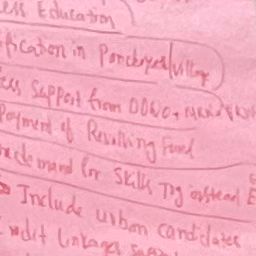 ess Education
fication in Panchayat/village
ess support from
Payment of Revolving Fund
demand for skills Trg instead
Include urban candidates
Linkages